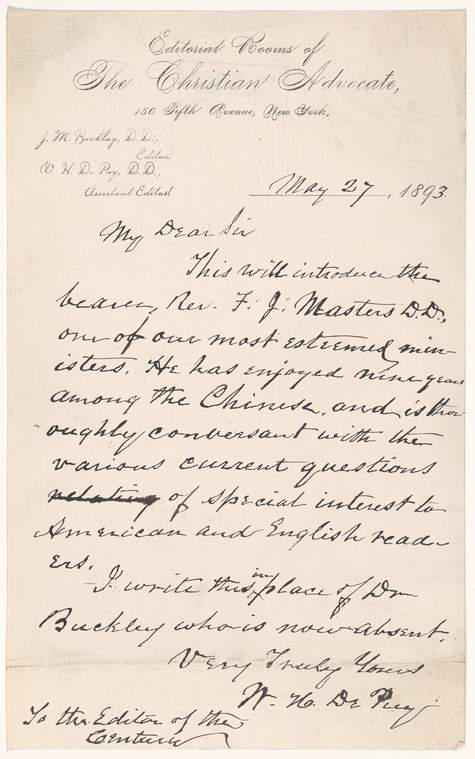 Editorial Rooms of
The Christian Advocate,
150 Fifth Avenue, New York,
J. M. Buckley, D. D.,
Editor.
W. H. De Puy, D. D.,
Assistant Editor.
May 27, 1893.
My Dear Sir
This will introduce the
bearer, Rev. F. J. Masters D.D.,
one of our most esteemed min-
isters. He has enjoyed nine years
among the Chinese, and is thor
oughly conversant with the
various current questions
relating of special interest to
American and English read-
ers.
I write this in place of Dr
Buckley who is now absent.
Very Truly Yours
W. H. De Puy
To the Editor of the
Century